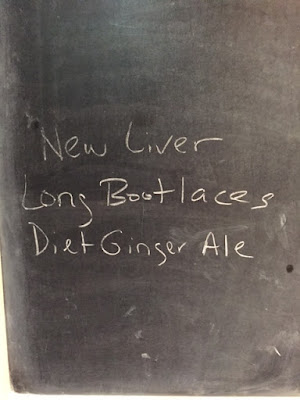 New Liver
Long Bootlaces
Diet Ginger Ale